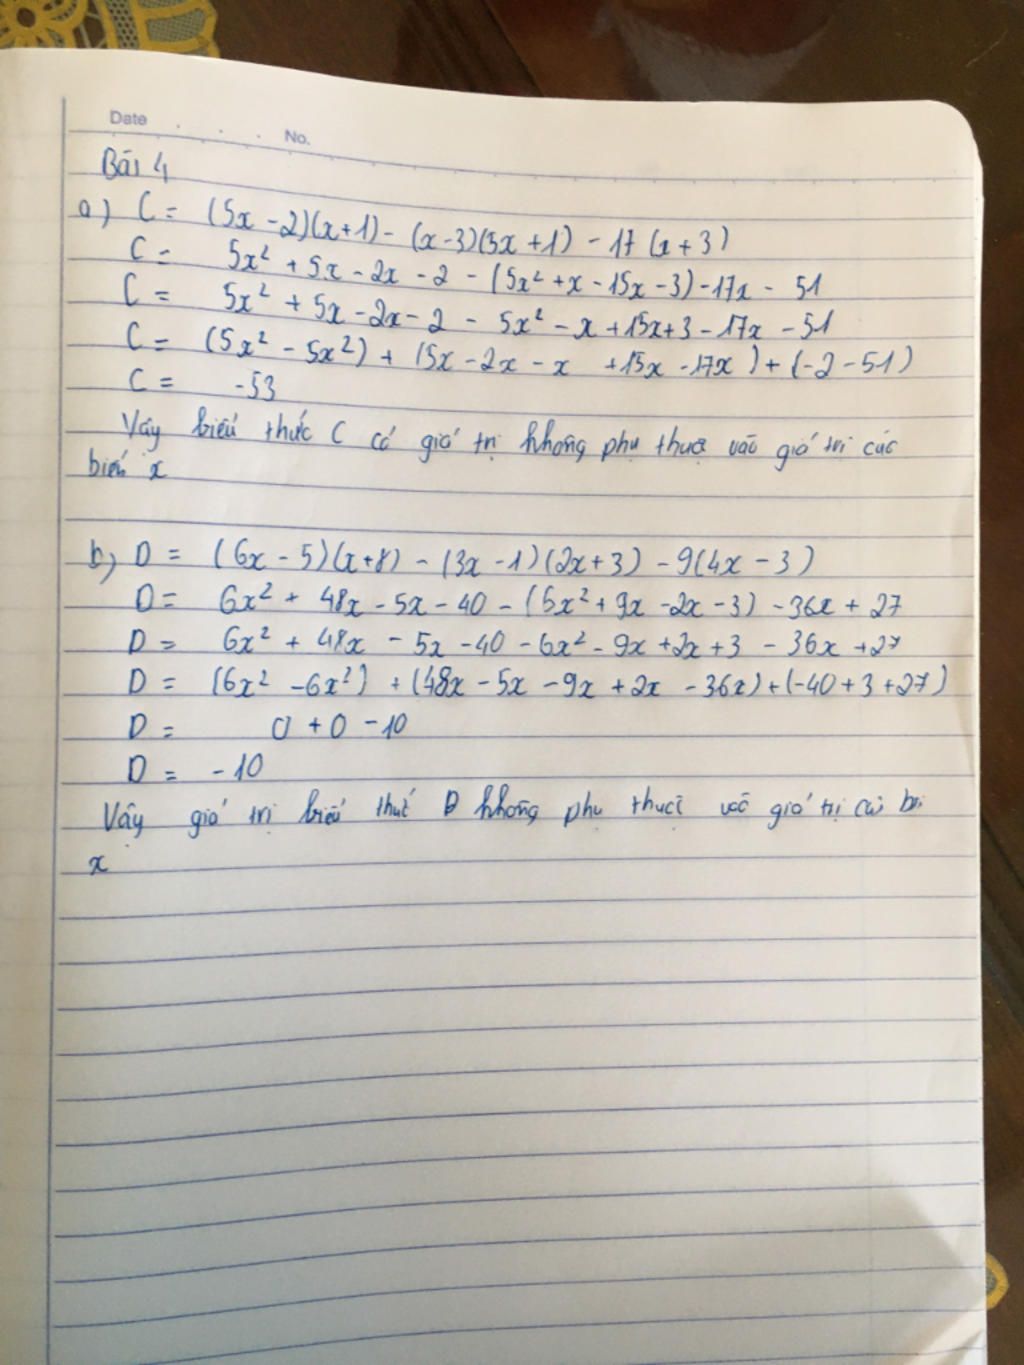 Date . . . No.
Bài 4
a) C = (5x - 2)(x+1) - (x-3)(5x+1) - 17(x+3)
C = 5x² + 5x - 2x - 2 - (5x² + x - 15x - 3) - 17x - 51
C = 5x² + 5x - 2x - 2 - 5x² - x + 15x + 3 - 17x - 51
C = (5x² - 5x²) + (5x - 2x - x + 15x - 17x) + (-2 - 51)
C = -53
Vậy biểu thức C có giá trị không phụ thuộc vào giá trị các
biến x
b) D = (6x - 5)(x+8) - (3x - 1)(2x+3) - 9(4x - 3)
D = 6x² + 48x - 5x - 40 - (6x² + 9x - 2x - 3) - 36x + 27
D = 6x² + 48x - 5x - 40 - 6x² - 9x + 2x + 3 - 36x + 27
D = (6x² - 6x²) + (48x - 5x - 9x + 2x - 36x) + (-40 + 3 + 27)
D = 0 + 0 - 10
D = - 10
Vậy giá trị biểu thức D không phụ thuộc vào giá trị
x